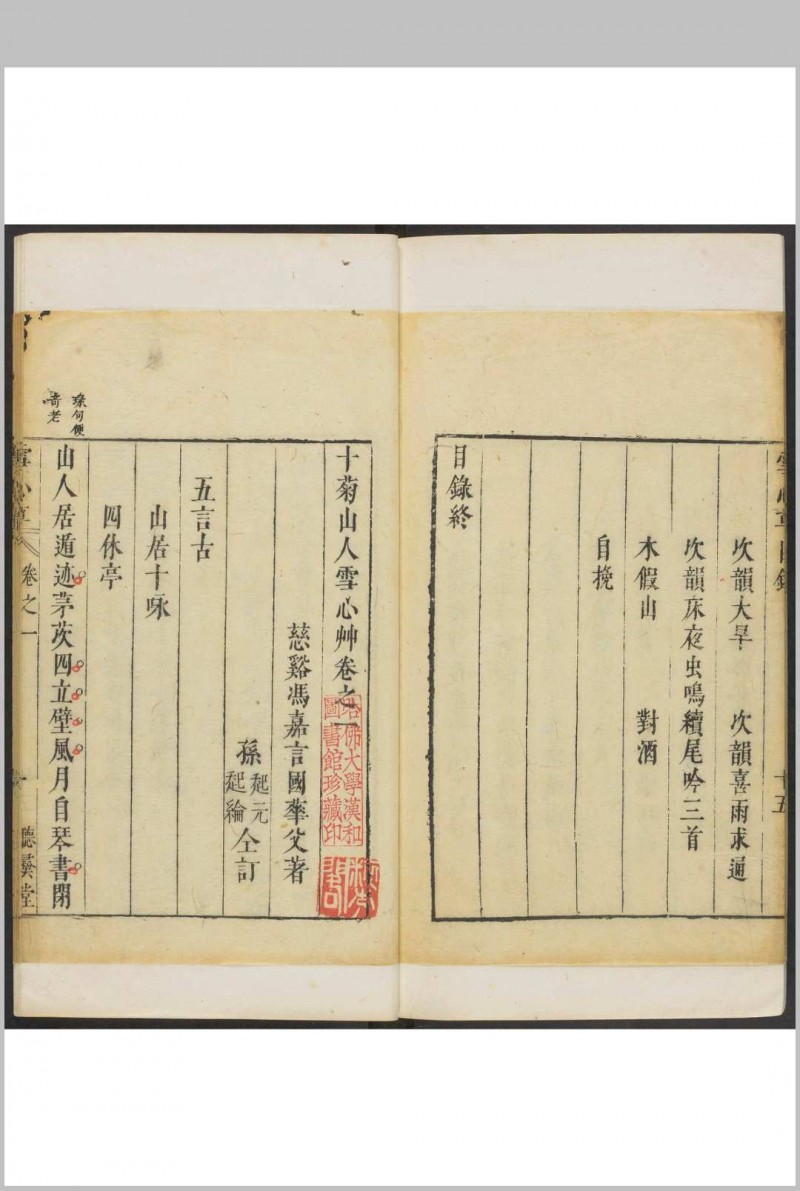 雪心草目錄
十五
次韻大旱　次韻喜雨求通
次韻床夜虫鳴續尾吟三首
木假山　對酒
自挽
目錄終
十菊山人雪心艸卷之一
哈佛大學漢和圖書館珍藏印
慈谿馮嘉言國華父著
孫起元起綸仝訂
五言古
山居十咏
四休亭
山人居遁迹茅茨四立壁風月自琴書閉
琢句便
奇老
雪心草
卷之一
一
聽
堂